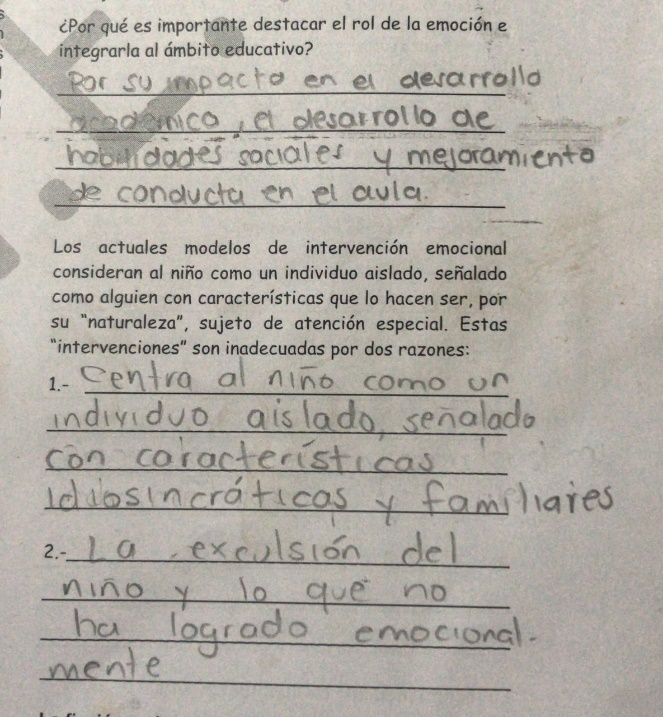 ¿Por qué es importante destacar el rol de la emoción e
integrarla al ámbito educativo?
Por su impacto en el desarrollo
académico, el desarrollo de
habilidades sociales y mejoramiento
de conducta en el aula.
Los actuales modelos de intervención emocional
consideran al niño como un individuo aislado, señalado
como alguien con características que lo hacen ser, por
su "naturaleza", sujeto de atención especial. Estas
"intervenciones" son inadecuadas por dos razones:
1.- Centra al niño como un
individuo aislado, señalado
con características
idiosincráticas y familiares
2.- La exculsión del
niño y lo que no
ha logrado emocional-
mente